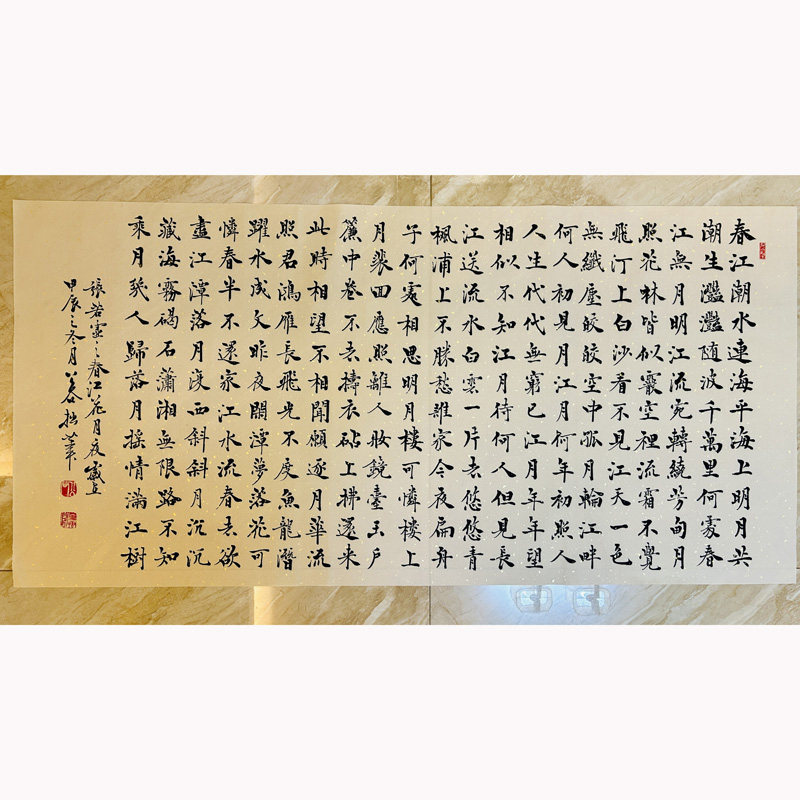 春江潮水連海平海上明月共
潮生灩灩随波千萬里何處春
江無月明江流宛轉繞芳甸月
照花林皆似霰空裡流霜不覺
飛汀上白沙看不見江天一色
無纖塵皎皎空中孤月輪江畔
何人初見月江月何年初照人
人生代代無窮已江月年年望
相似不知江月待何人但見長
江送流水白雲一片去悠悠青
楓浦上不勝愁誰家今夜扁舟
子何處相思明月樓可憐樓上
月裴回應照離人妝鏡臺玉户
簾中卷不去擣衣砧上拂還来
此時相望不相聞願逐月華流
照君鴻雁長飛光不度魚龍潛
躍水成文昨夜閒潭夢落花可
憐春半不還家江水流春去欲
盡江潭落月復西斜斜月沉沉
藏海霧碣石瀟湘無限路不知
乘月幾人歸落月摇情滿江樹
張若虛之春江花月夜
甲辰之冬月拙筆